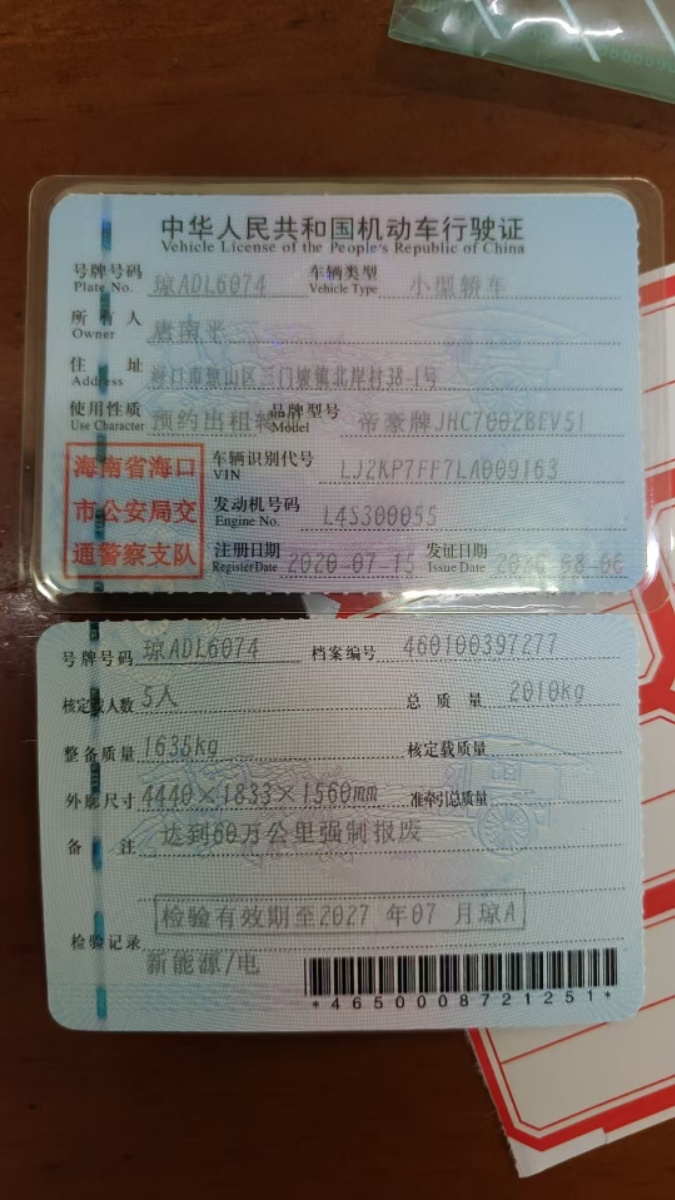 中华人民共和国机动车行驶证
Vehicle License of the People's Republic of China
号牌号码 Plate No. 琼ADL6074 车辆类型 Vehicle Type 小型轿车
所有人 Owner 唐南平
住址 Address 海口市琼山区三门坡镇北岸村38-1号
使用性质 Use Character 预约出租转 品牌型号 Model 帝豪牌JHC7002BEV51
海南省海口
市公安局交
通警察支队
车辆识别代号 VIN LJ2KP7FF7LA009163
发动机号码 Engine No. L4S300055
注册日期 Register Date 2020-07-15 发证日期 Issue Date
号牌号码 琼ADL6074 档案编号 460100397277
核定载人数 5人 总质量 2010kg
整备质量 1635kg 核定载质量
外廓尺寸 4440×1833×1560mm 准牵引总质量
备注 达到60万公里强制报废
检验有效期至2027 年07 月琼A
检验记录
新能源/电
*4650008721251*